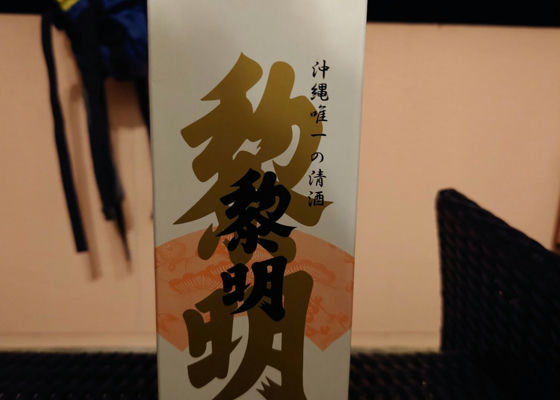 沖縄唯一の清酒
黎明
黎明